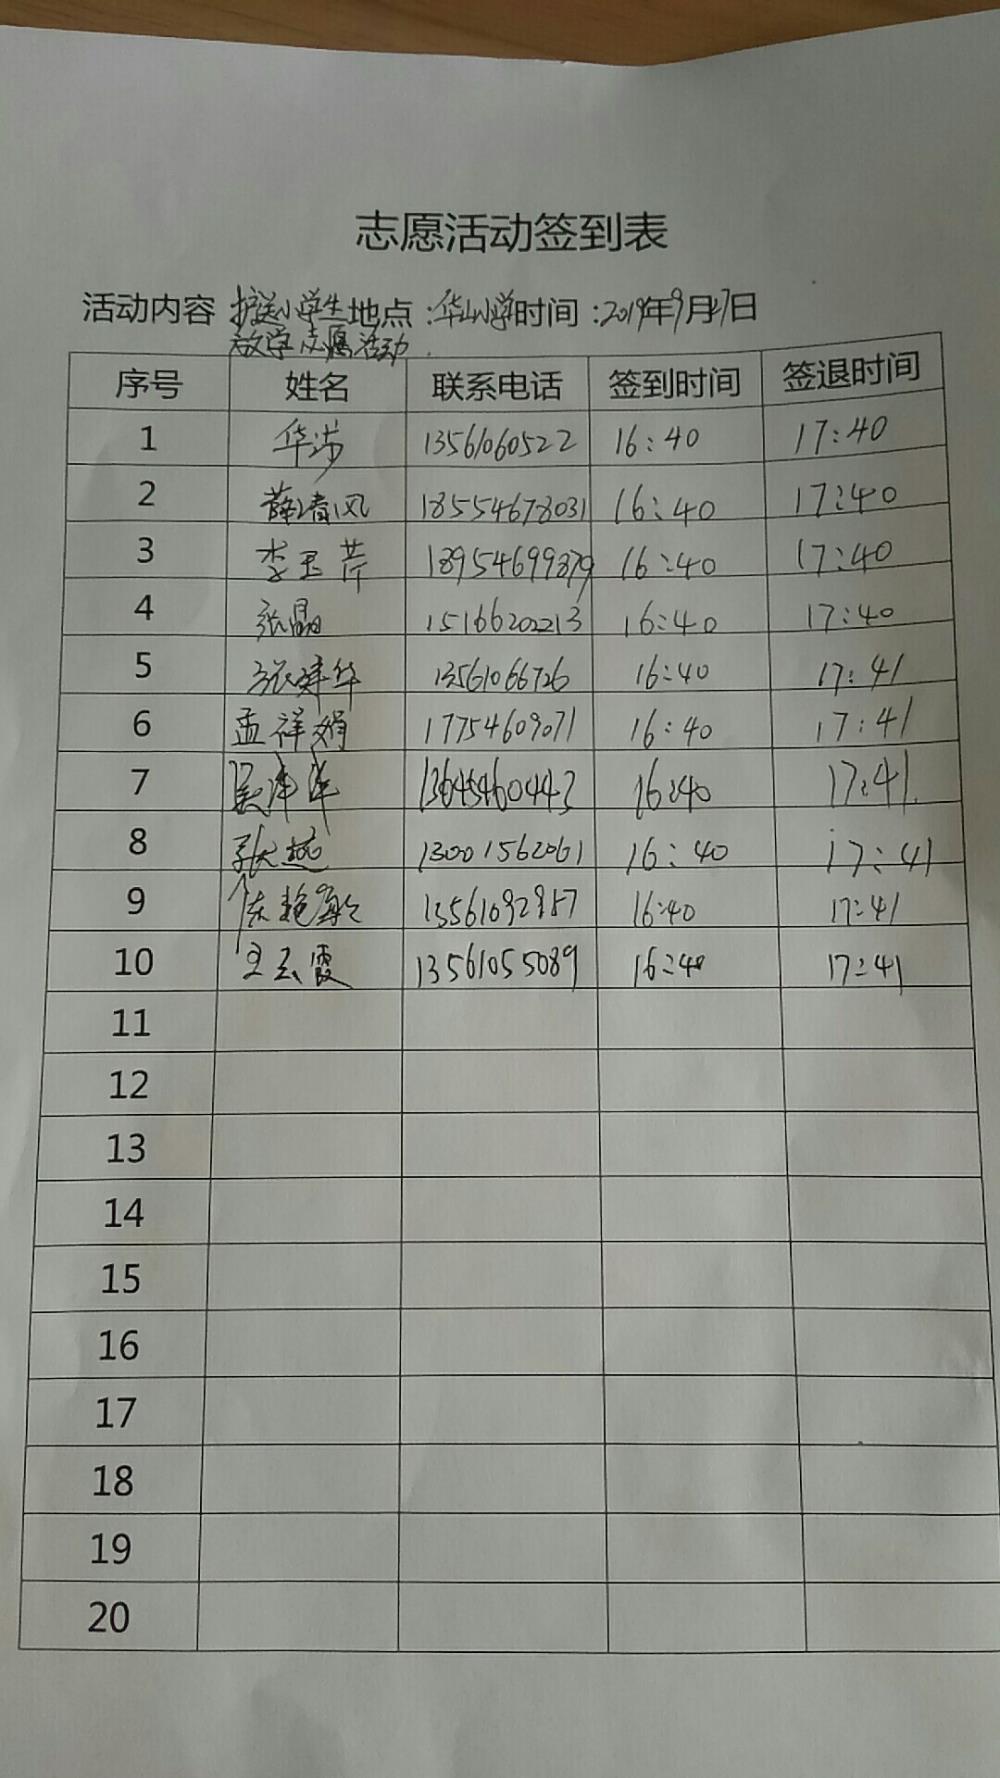 志愿活动签到表
活动内容 护送小学生 地点:华山小学 时间:2019年9月27日
放学志愿活动.
序号 姓名 联系电话 签到时间 签退时间
1 华涛 13561060522 16:40 17:40
2 薛清风 18554678031 16:40 17:40
3 李玉芹 18954699879 16:40 17:40
4 张晶 15166202213 16:40 17:40
5 张建华 13561066726 16:40 17:41
6 孟祥娟 17754609071 16:40 17:41
7 13645460443 16:40 17:41
8 张超 13001562061 16:40 17:41
9 13561092957 16:40 17:41
10 王云霞 13561055089 16:40 17:41
11
12
13
14
15
16
17
18
19
20